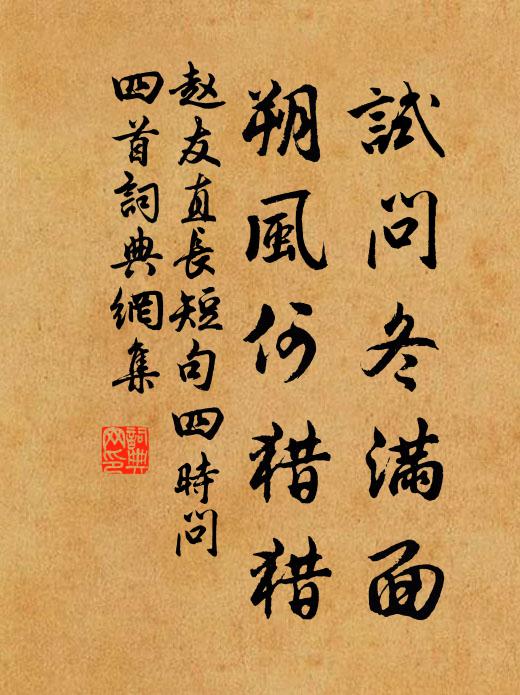 試問冬滿面
朔風何猎猎
赵友直長短句四時問
四首詞典網集
詞典
网印